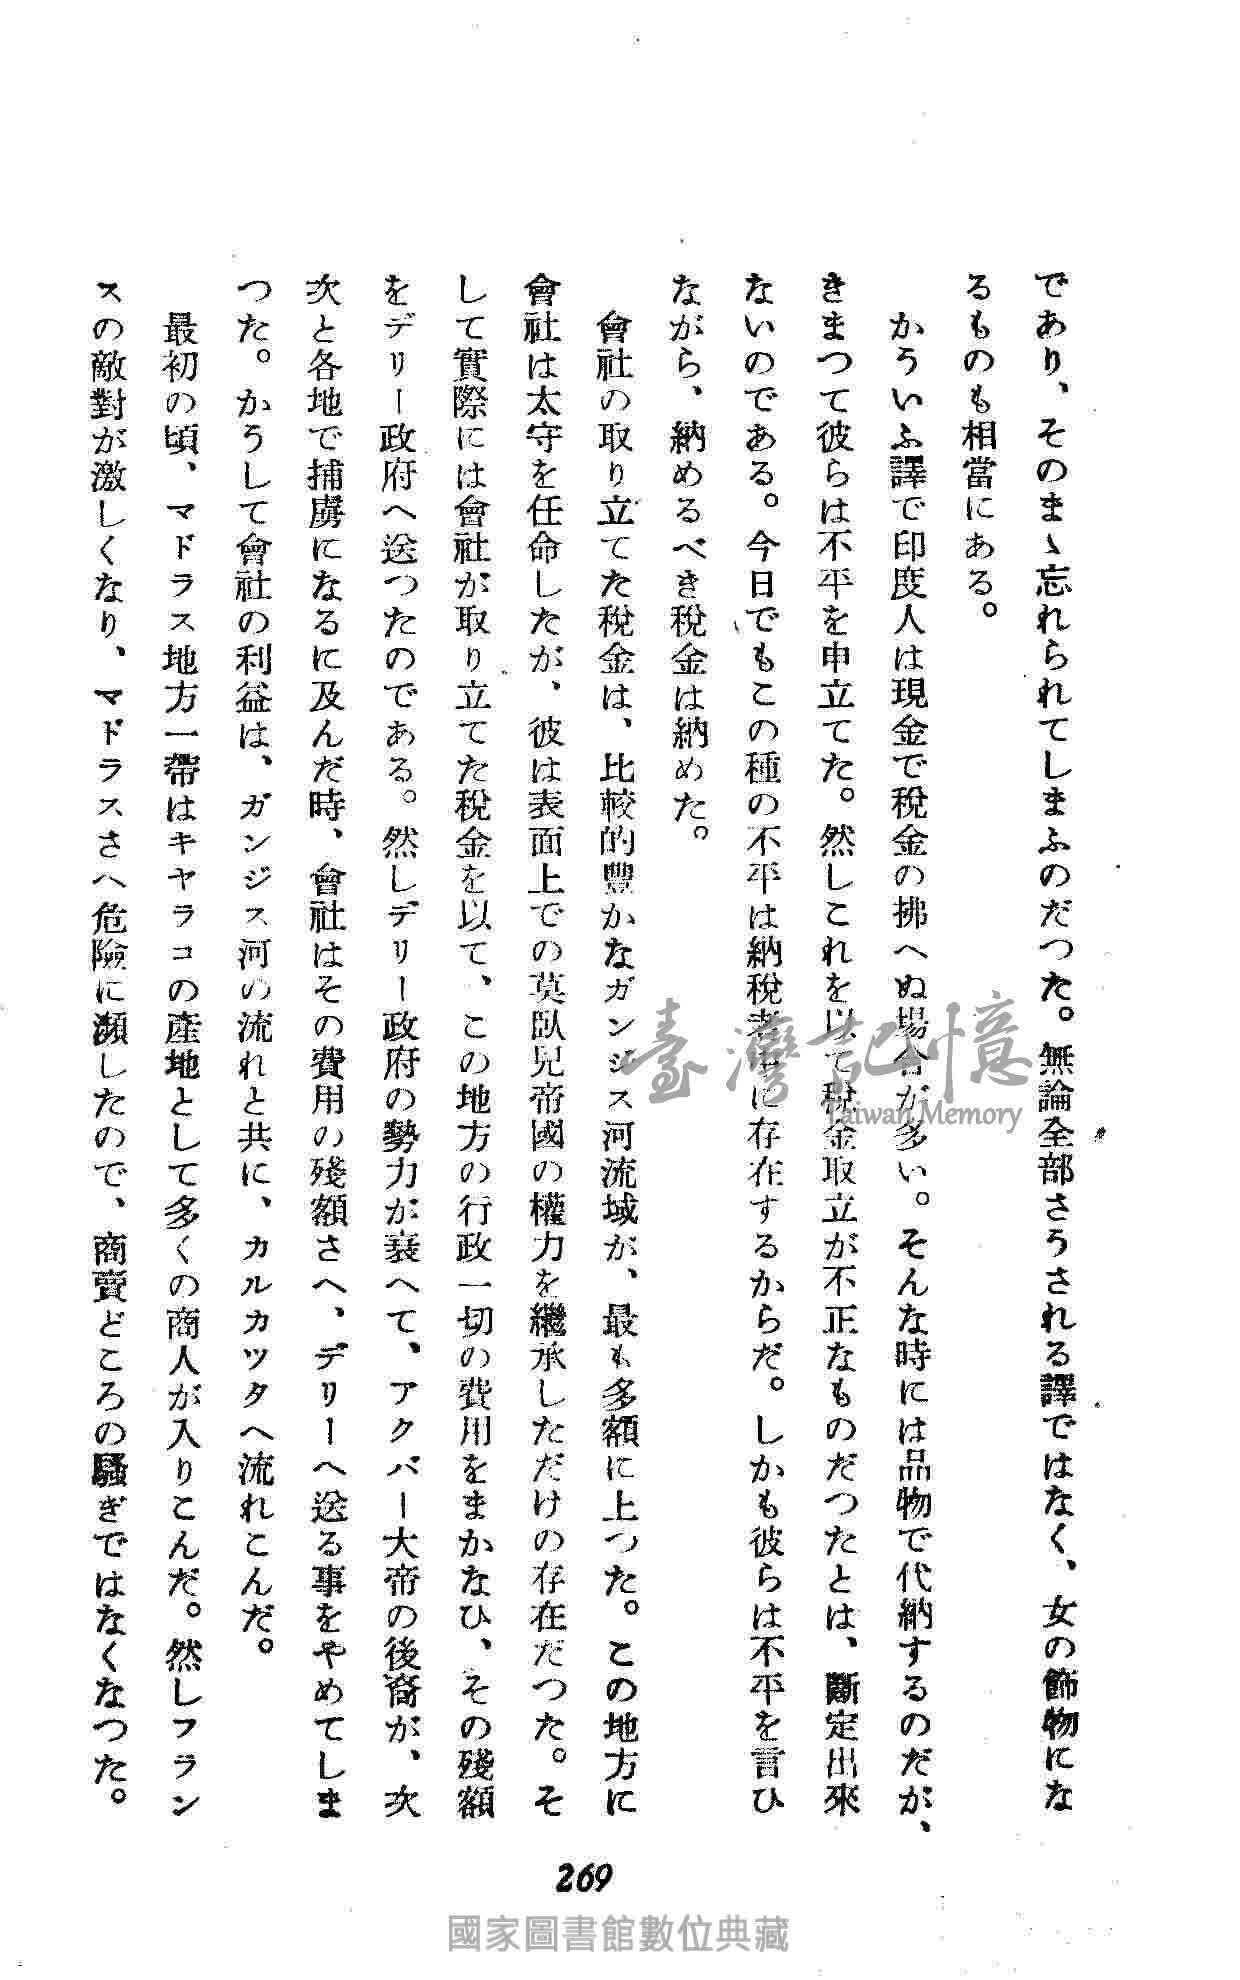 であり、そのまゝ忘れられてしまふのだつた。無論全部さうされる譯ではなく、女の飾物にな
るものも相當にある。
かういふ譯で印度人は現金で稅金の拂へぬ場合が多い。そんな時には品物で代納するのだが、
きまつて彼らは不平を申立てた。然しこれを以て稅金取立が不正なものだつたとは、斷定出來
ないのである。今日でもこの種の不平は納稅者中に存在するからだ。しかも彼らは不平を言ひ
ながら、納めるべき稅金は納めた。
會社の取り立てた稅金は、比較的豐かなガンジス河流域が、最も多額に上つた。この地方に
會社は太守を任命したが、彼は表面上での莫臥兒帝國の權力を繼承しただけの存在だつた。そ
して實際には會社が取り立てた稅金を以て、この地方の行政一切の費用をまかなひ、その殘額
をデリー政府へ送つたのである。然しデリー政府の勢力が衰へて、アクバー大帝の後裔が、次
次と各地で捕虜になるに及んだ時、會社はその費用の殘額さへ、デリーへ送る事をやめてしま
つた。かうして會社の利益は、ガンジス河の流れと共に、カルカツタへ流れこんだ。
最初の頃、マドラス地方一帶はキヤラコの產地として多くの商人が入りこんだ。然しフラン
スの敵對が激しくなり、マドラスさへ危險に瀕したので、商賣どころの騷ぎではなくなつた。
269
臺灣記憶
Taiwan Memory
國家圖書館數位典藏